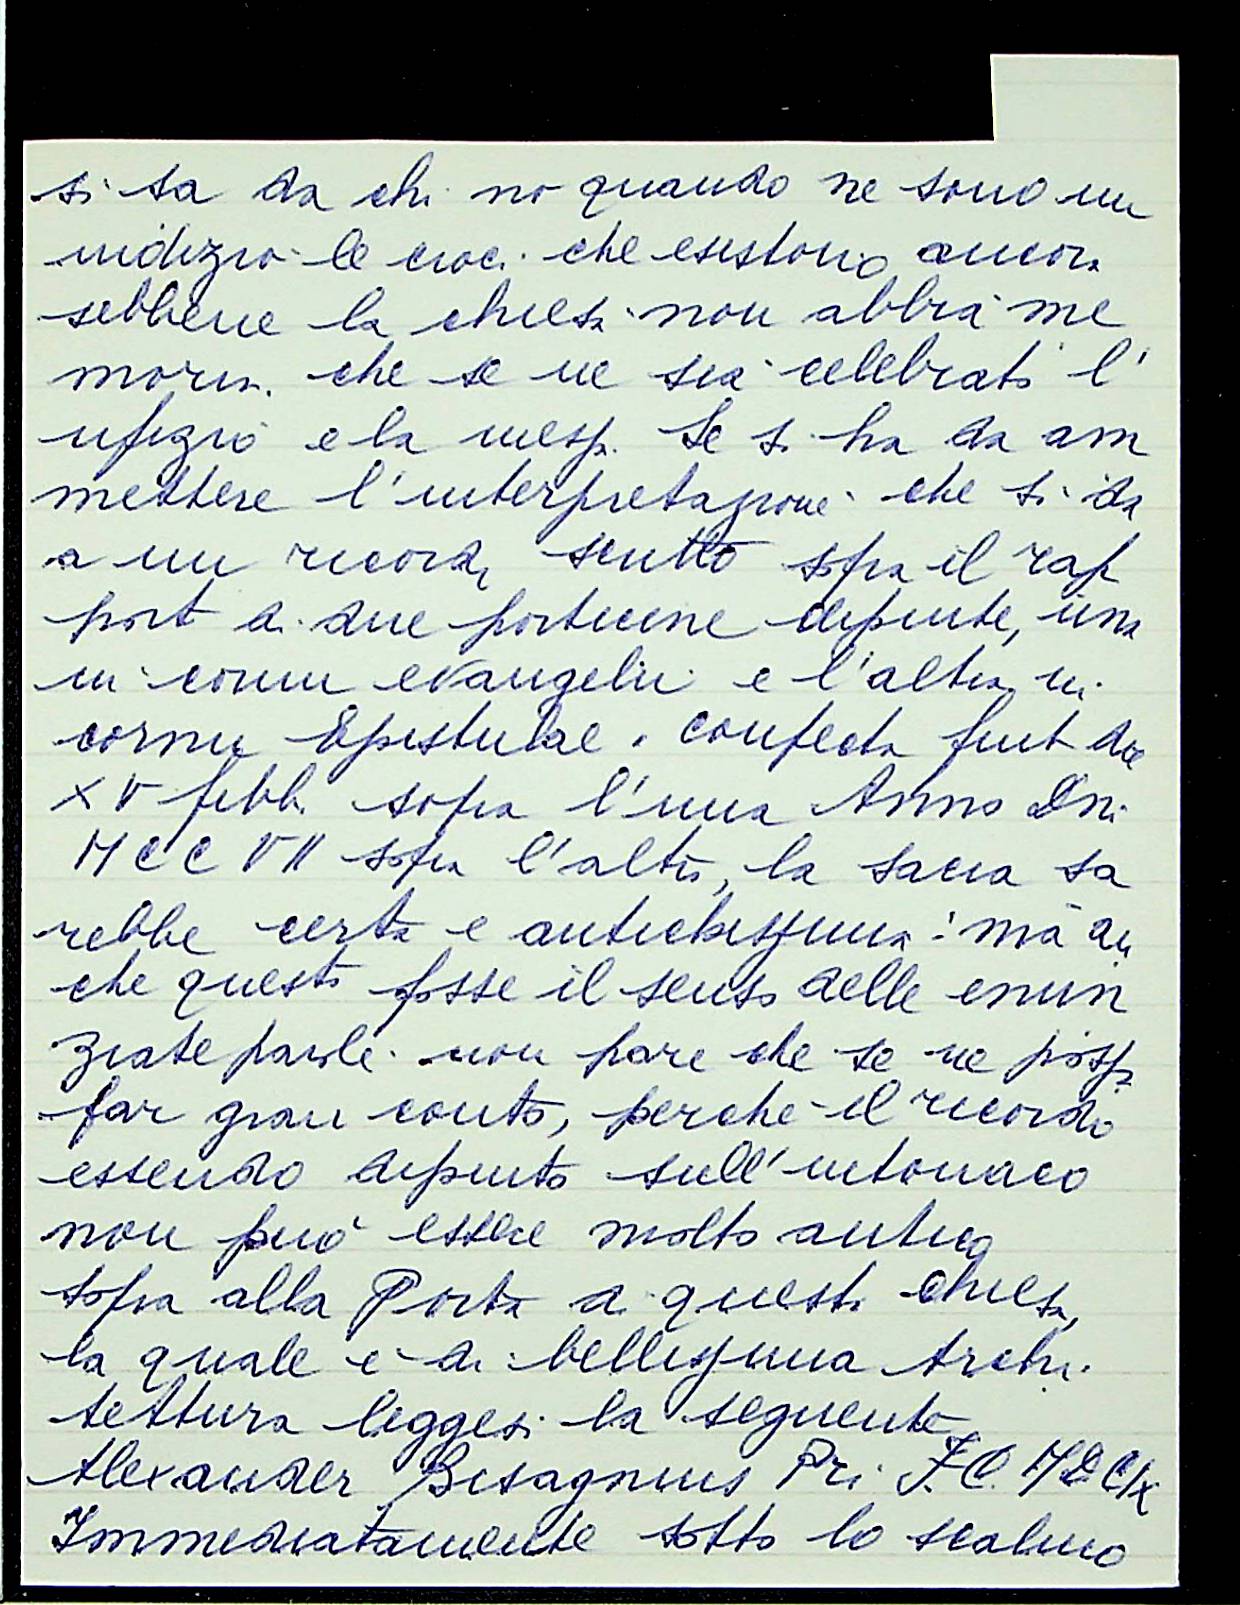 si sa da chi no quando ne sono un
indizio le croci che esistono ancora
sebbene la chiesa non abbia me
moria che se ne sia celebrato l'
ufizio e la messa. Se si ha da am
mettere l'interpretazione che si da
a un ricordo scritto sopra il rap
porto di due porticine dipinte, una
in cornu evangelii e l'altra in
cornu Epistulae. confecta fuit die
XV febb. sopra l'una Anno Dni
MCCVII sopra l'altra, la sacra sa
rebbe certa e antichissima: ma an
che questo fosse il senso delle enun
ziate parole non pare che se ne possa
far gran conto, perche il ricordo
essendo dipinto sull'intonaco
non può essere molto antico
sopra alla Porta di questa chiesa,
la quale e di bellissima Archi
tettura leggesi la seguente
Alexander Bisagnius Pri. F.C. MDCIX
Immediatamente sotto lo scalino